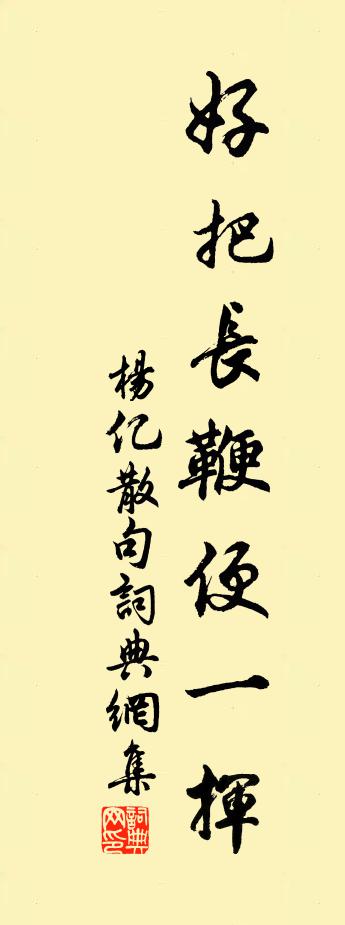 好把長鞭便一揮
楊亿散句詞典網集
詞典网印